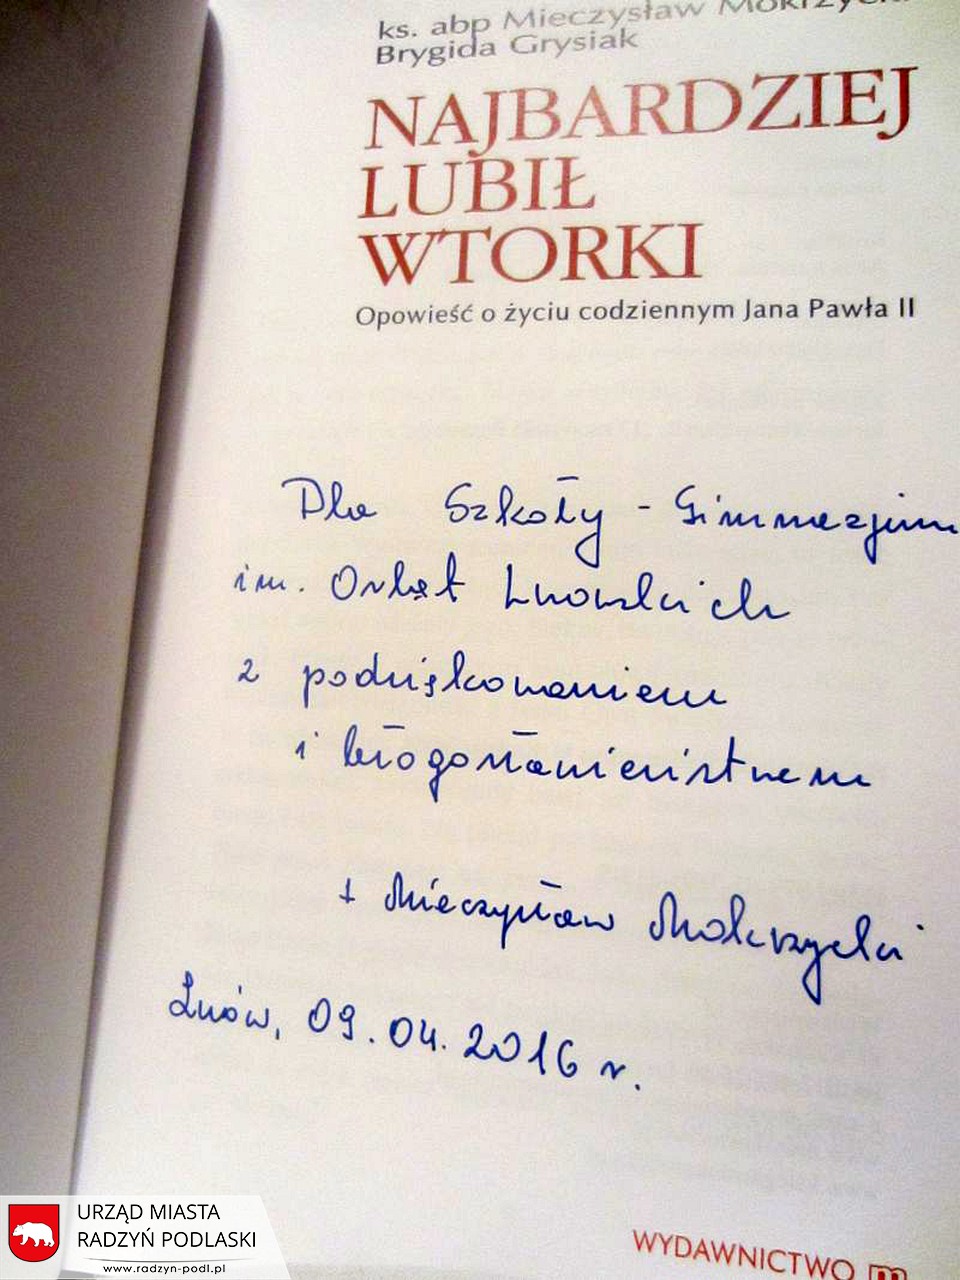 ks. abp Mieczysław Mokrzycki
Brygida Grysiak
NAJBARDZIEJ
LUBIŁ
WTORKI
Opowieść o życiu codziennym Jana Pawła II
Dla Szkoły - Gimnazjum
im. Orląt Lwowskich
z podziękowaniem
i błogosławieństwem
+ Mieczysław Mokrzycki
Lwów, 09.04.2016 r.
WYDAWNICTWO m
URZĄD MIASTA
RADZYŃ PODLASKI
www.radzyn-podl.pl